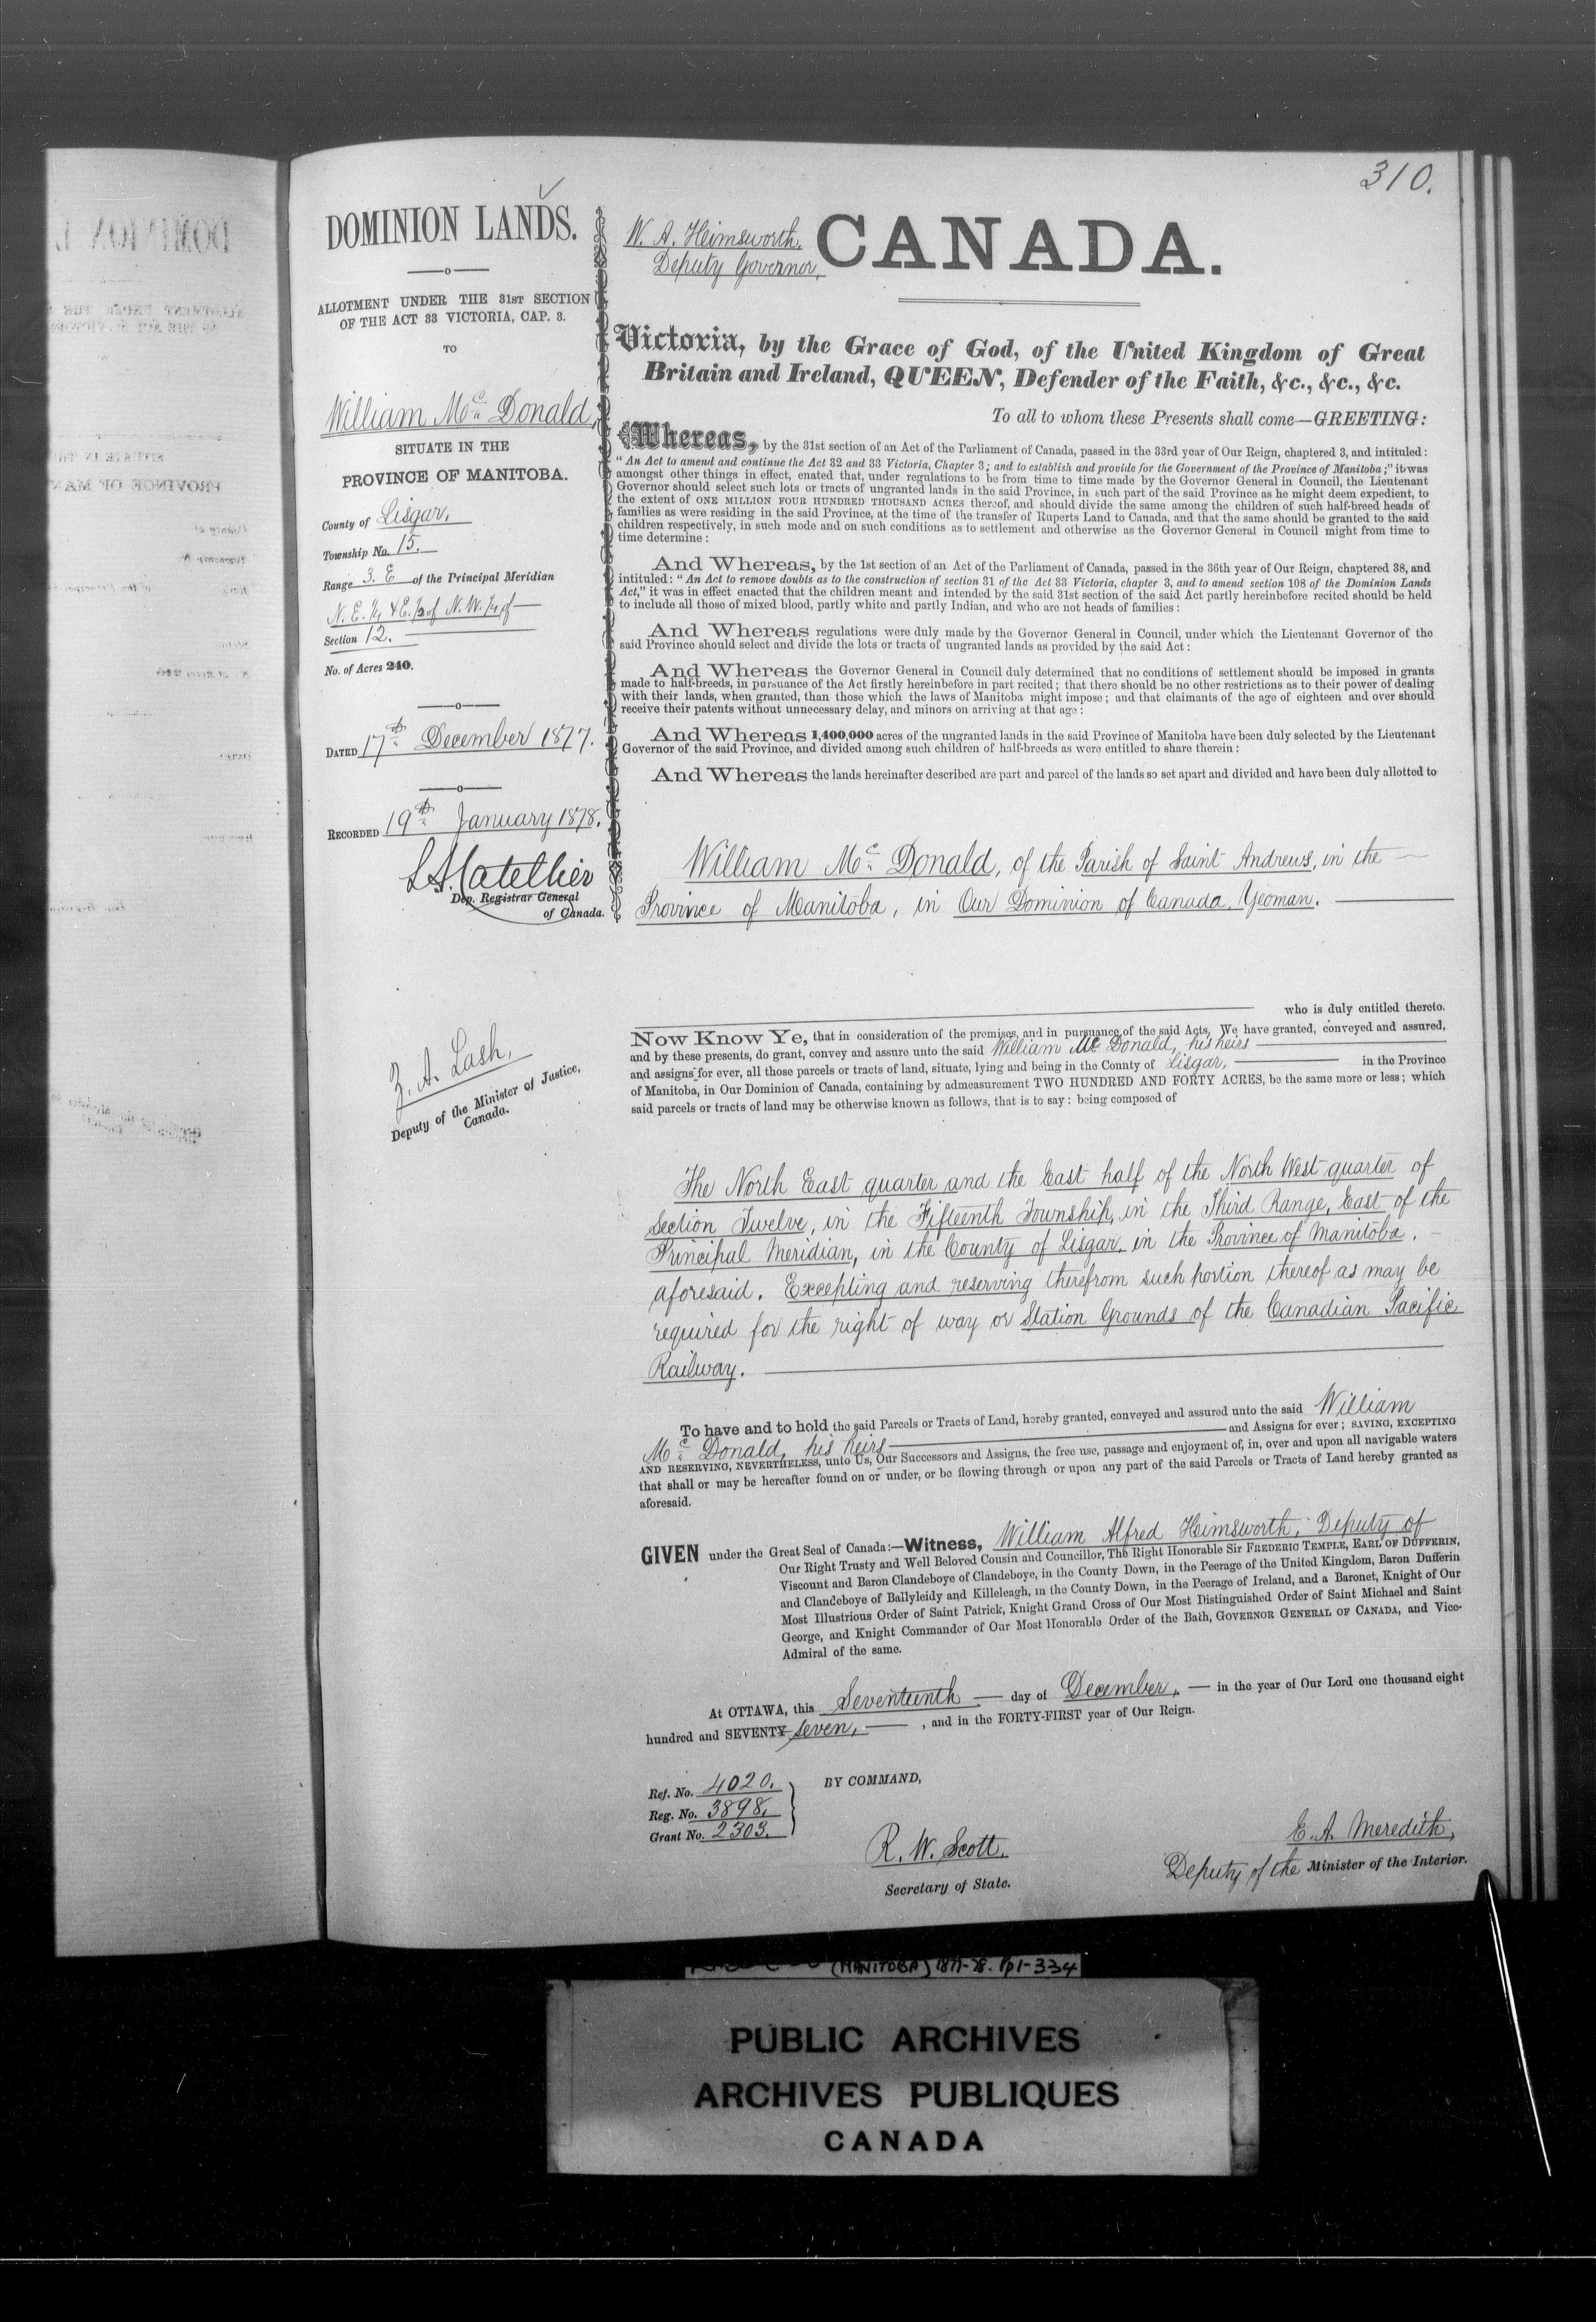 310.
DOMINION LANDS.
ALLOTMENT UNDER THE 31ST SECTION
OF THE ACT 33 VICTORIA, CAP. 3.
TO
William Mc Donald,
SITUATE IN THE
PROVINCE OF MANITOBA.
County of Lisgar,
Township No. 15.
Range 3. E of the Principal Meridian
N. E. ¼ & E. ½ of N. W. ¼ of
Section 12.
No. of Acres 240.
DATED 17th December 1877.
RECORDED 19th January 1878.
Dep. Registrar General
of Canada.
Z. A. Lash,
Deputy of the Minister of Justice,
Canada.
W. A. Himsworth,
Deputy Governor,
CANADA.
Victoria, by the Grace of God, of the United Kingdom of Great
Britain and Ireland, QUEEN, Defender of the Faith, &c., &c., &c.
To all to whom these Presents shall come—GREETING:
Whereas, by the 31st section of an Act of the Parliament of Canada, passed in the 33rd year of Our Reign, chaptered 3, and intituled:
"An Act to amend and continue the Act 32 and 33 Victoria, Chapter 3; and to establish and provide for the Government of the Province of Manitoba;" it was
amongst other things in effect, enated that, under regulations to be from time to time made by the Governor General in Council, the Lieutenant
Governor should select such lots or tracts of ungranted lands in the said Province, in such part of the said Province as he might deem expedient, to
the extent of ONE MILLION FOUR HUNDRED THOUSAND ACRES thereof, and should divide the same among the children of such half-breed heads of
families as were residing in the said Province, at the time of the transfer of Ruperts Land to Canada, and that the same should be granted to the said
children respectively, in such mode and on such conditions as to settlement and otherwise as the Governor General in Council might from time to
time determine:
And Whereas, by the 1st section of an Act of the Parliament of Canada, passed in the 36th year of Our Reign, chaptered 38, and
intituled: "An Act to remove doubts as to the construction of section 31 of the Act 33 Victoria, chapter 3, and to amend section 108 of the Dominion Lands
Act," it was in effect enacted that the children meant and intended by the said 31st section of the said Act partly hereinbefore recited should be held
to include all those of mixed blood, partly white and partly Indian, and who are not heads of families:
And Whereas regulations were duly made by the Governor General in Council, under which the Lieutenant Governor of the
said Province should select and divide the lots or tracts of ungranted lands as provided by the said Act:
And Whereas the Governor General in Council duly determined that no conditions of settlement should be imposed in grants
made to half-breeds, in pursuance of the Act firstly hereinbefore in part recited; that there should be no other restrictions as to their power of dealing
with their lands, when granted, than those which the laws of Manitoba might impose; and that claimants of the age of eighteen and over should
receive their patents without unnecessary delay, and minors on arriving at that age:
And Whereas 1,400,000 acres of the ungranted lands in the said Province of Manitoba have been duly selected by the Lieutenant
Governor of the said Province, and divided among such children of half-breeds as were entitled to share therein:
And Whereas the lands hereinafter described are part and parcel of the lands so set apart and divided and have been duly allotted to
William Mc Donald, of the Parish of Saint Andrews, in the
Province of Manitoba, in Our Dominion of Canada, Yeoman.
who is duly entitled thereto.
NOW KNOW YE, that in consideration of the premises, and in pursuance of the said Acts, We have granted, conveyed and assured,
and by these presents, do grant, convey and assure unto the said William Mc Donald, his heirs
and assigns for ever, all those parcels or tracts of land, situate, lying and being in the County of Lisgar, in the Province
of Manitoba, in Our Dominion of Canada, containing by admeasurement TWO HUNDRED AND FORTY ACRES, be the same more or less; which
said parcels or tracts of land may be otherwise known as follows, that is to say: being composed of
The North East quarter and the East half of the North West quarter of
Section Twelve, in the Fifteenth Township, in the Third Range, East of the
Principal Meridian, in the County of Lisgar, in the Province of Manitoba,
aforesaid. Excepting and reserving therefrom such portion thereof as may be
required for the right of way or Station Grounds of the Canadian Pacific
Railway.
To have and to hold the said Parcels or Tracts of Land, hereby granted, conveyed and assured unto the said William
Mc Donald, his heirs and Assigns for ever; SAVING, EXCEPTING
AND RESERVING, NEVERTHELESS, unto Us, Our Successors and Assigns, the free use, passage and enjoyment of, in, over and upon all navigable waters
that shall or may be hereafter found on or under, or be flowing through or upon any part of the said Parcels or Tracts of Land hereby granted as
aforesaid.
GIVEN under the Great Seal of Canada:—Witness, William Alfred Himsworth, Deputy of
Our Right Trusty and Well Beloved Cousin and Councillor, The Right Honorable Sir FREDERIC TEMPLE, EARL OF DUFFERIN,
Viscount and Baron Clandeboye of Clandeboye, in the County Down, in the Peerage of the United Kingdom, Baron Dufferin
and Clandeboye of Ballyleidy and Killeleagh, in the County Down, in the Peerage of Ireland, and a Baronet, Knight of Our
Most Illustrious Order of Saint Patrick, Knight Grand Cross of Our Most Distinguished Order of Saint Michael and Saint
George, and Knight Commander of Our Most Honorable Order of the Bath, GOVERNOR GENERAL OF CANADA, and Vice-
Admiral of the same.
At OTTAWA, this Seventeenth day of December, in the year of Our Lord one thousand eight
hundred and SEVENTY-seven, , and in the FORTY-FIRST year of Our Reign.
Ref. No. 4020.
Reg. No. 3898.
Grant No. 2303.
BY COMMAND,
R. W. Scott.
Secretary of State.
E. A. Meredith,
Deputy of the Minister of the Interior.
(MANITOBA) 1877-78. pp1-334
PUBLIC ARCHIVES
ARCHIVES PUBLIQUES
CANADA